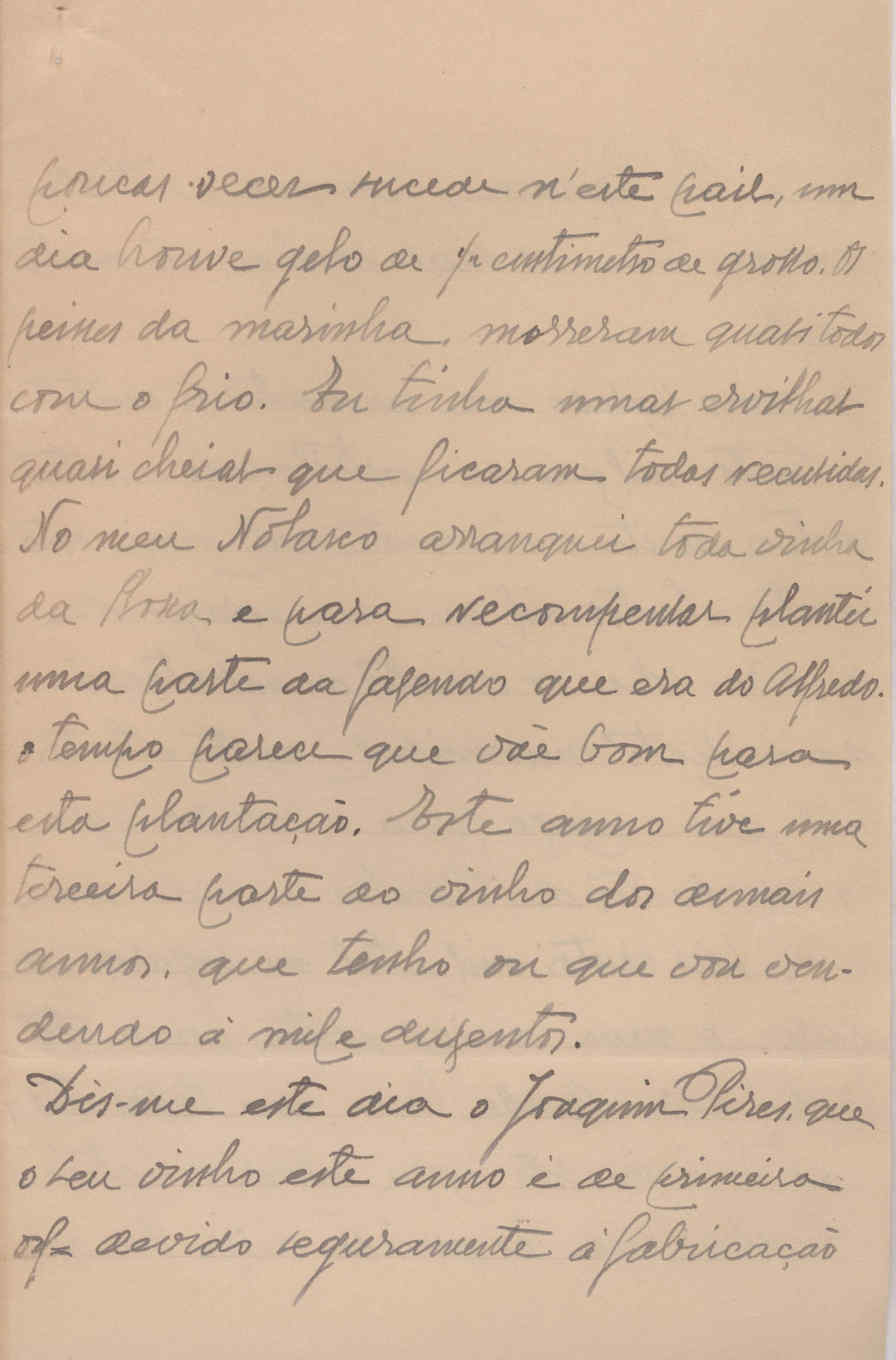 poucas veces sucede n'este paiz, um
dia houve gelo de centimetro de grosso. Os
peixes da marinha, morreram quasi todos
com o frio. Eu tinha umas ervilhas
quasi cheias que ficaram todas recusidas.
No meu Nolasco arranquei toda vinha
da Rossa e para recompensar plantei
uma parte da fasenda que era do Alfredo.
o tempo parece que vae bom para
esta plantação. Este anno tive uma
terceira parte do vinho dos demais
annos, que tenho ou que vou ven-
dendo á mil e dusentos.
Dis-me este dia o Joaquim Pires, que
o seu vinho este anno é de primeira
devido seguramente á fabricação